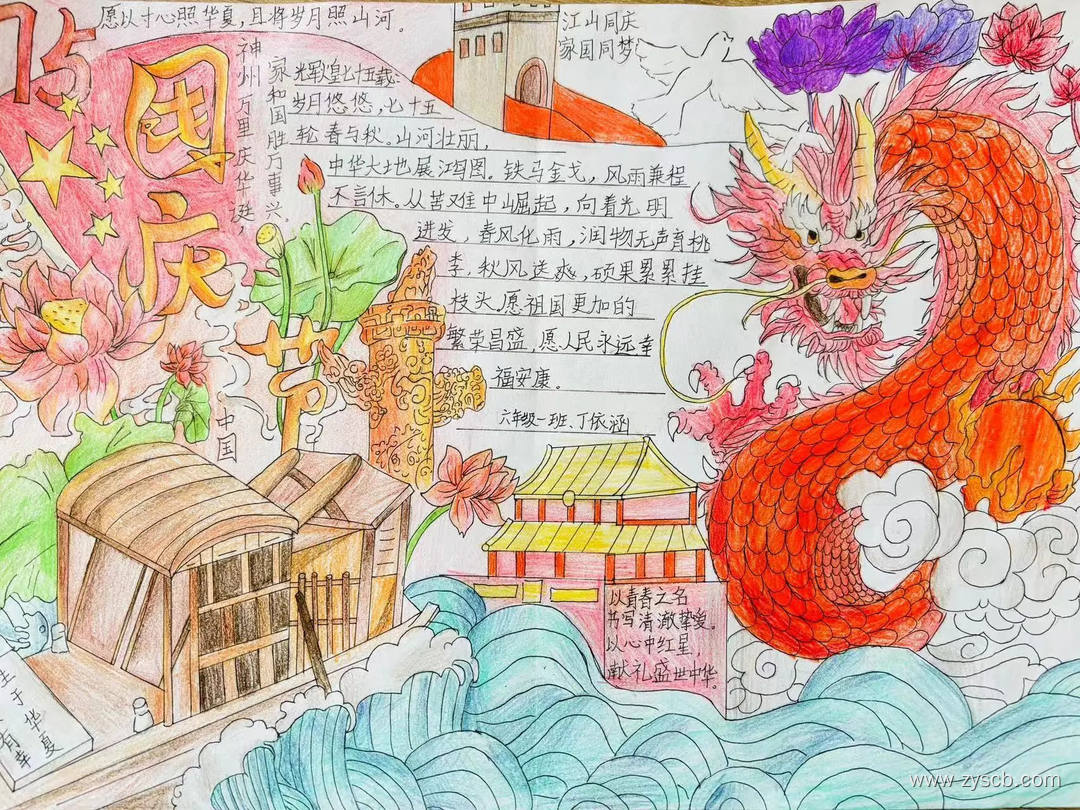 愿以寸心照华夏,且将岁月照山河。
75
国庆
节
神州万里庆华诞,
家和国胜万事兴。
江山同庆
家国同梦
光辉煌七十五载
岁月悠悠,七十五
轮春与秋。山河壮丽,
中华大地展鸿图。铁马金戈,风雨兼程
不言休。从苦难中崛起,向着光明
进发,春风化雨,润物无声育桃
李,秋风送爽,硕果累累挂
枝头。愿祖国更加的
繁荣昌盛,愿人民永远幸
福安康。
六年级一班、丁依涵
中国
以青春之名
书写清澈挚爱。
以心中红星,
献礼盛世中华。
生于华夏
有幸
www.zyscb.com